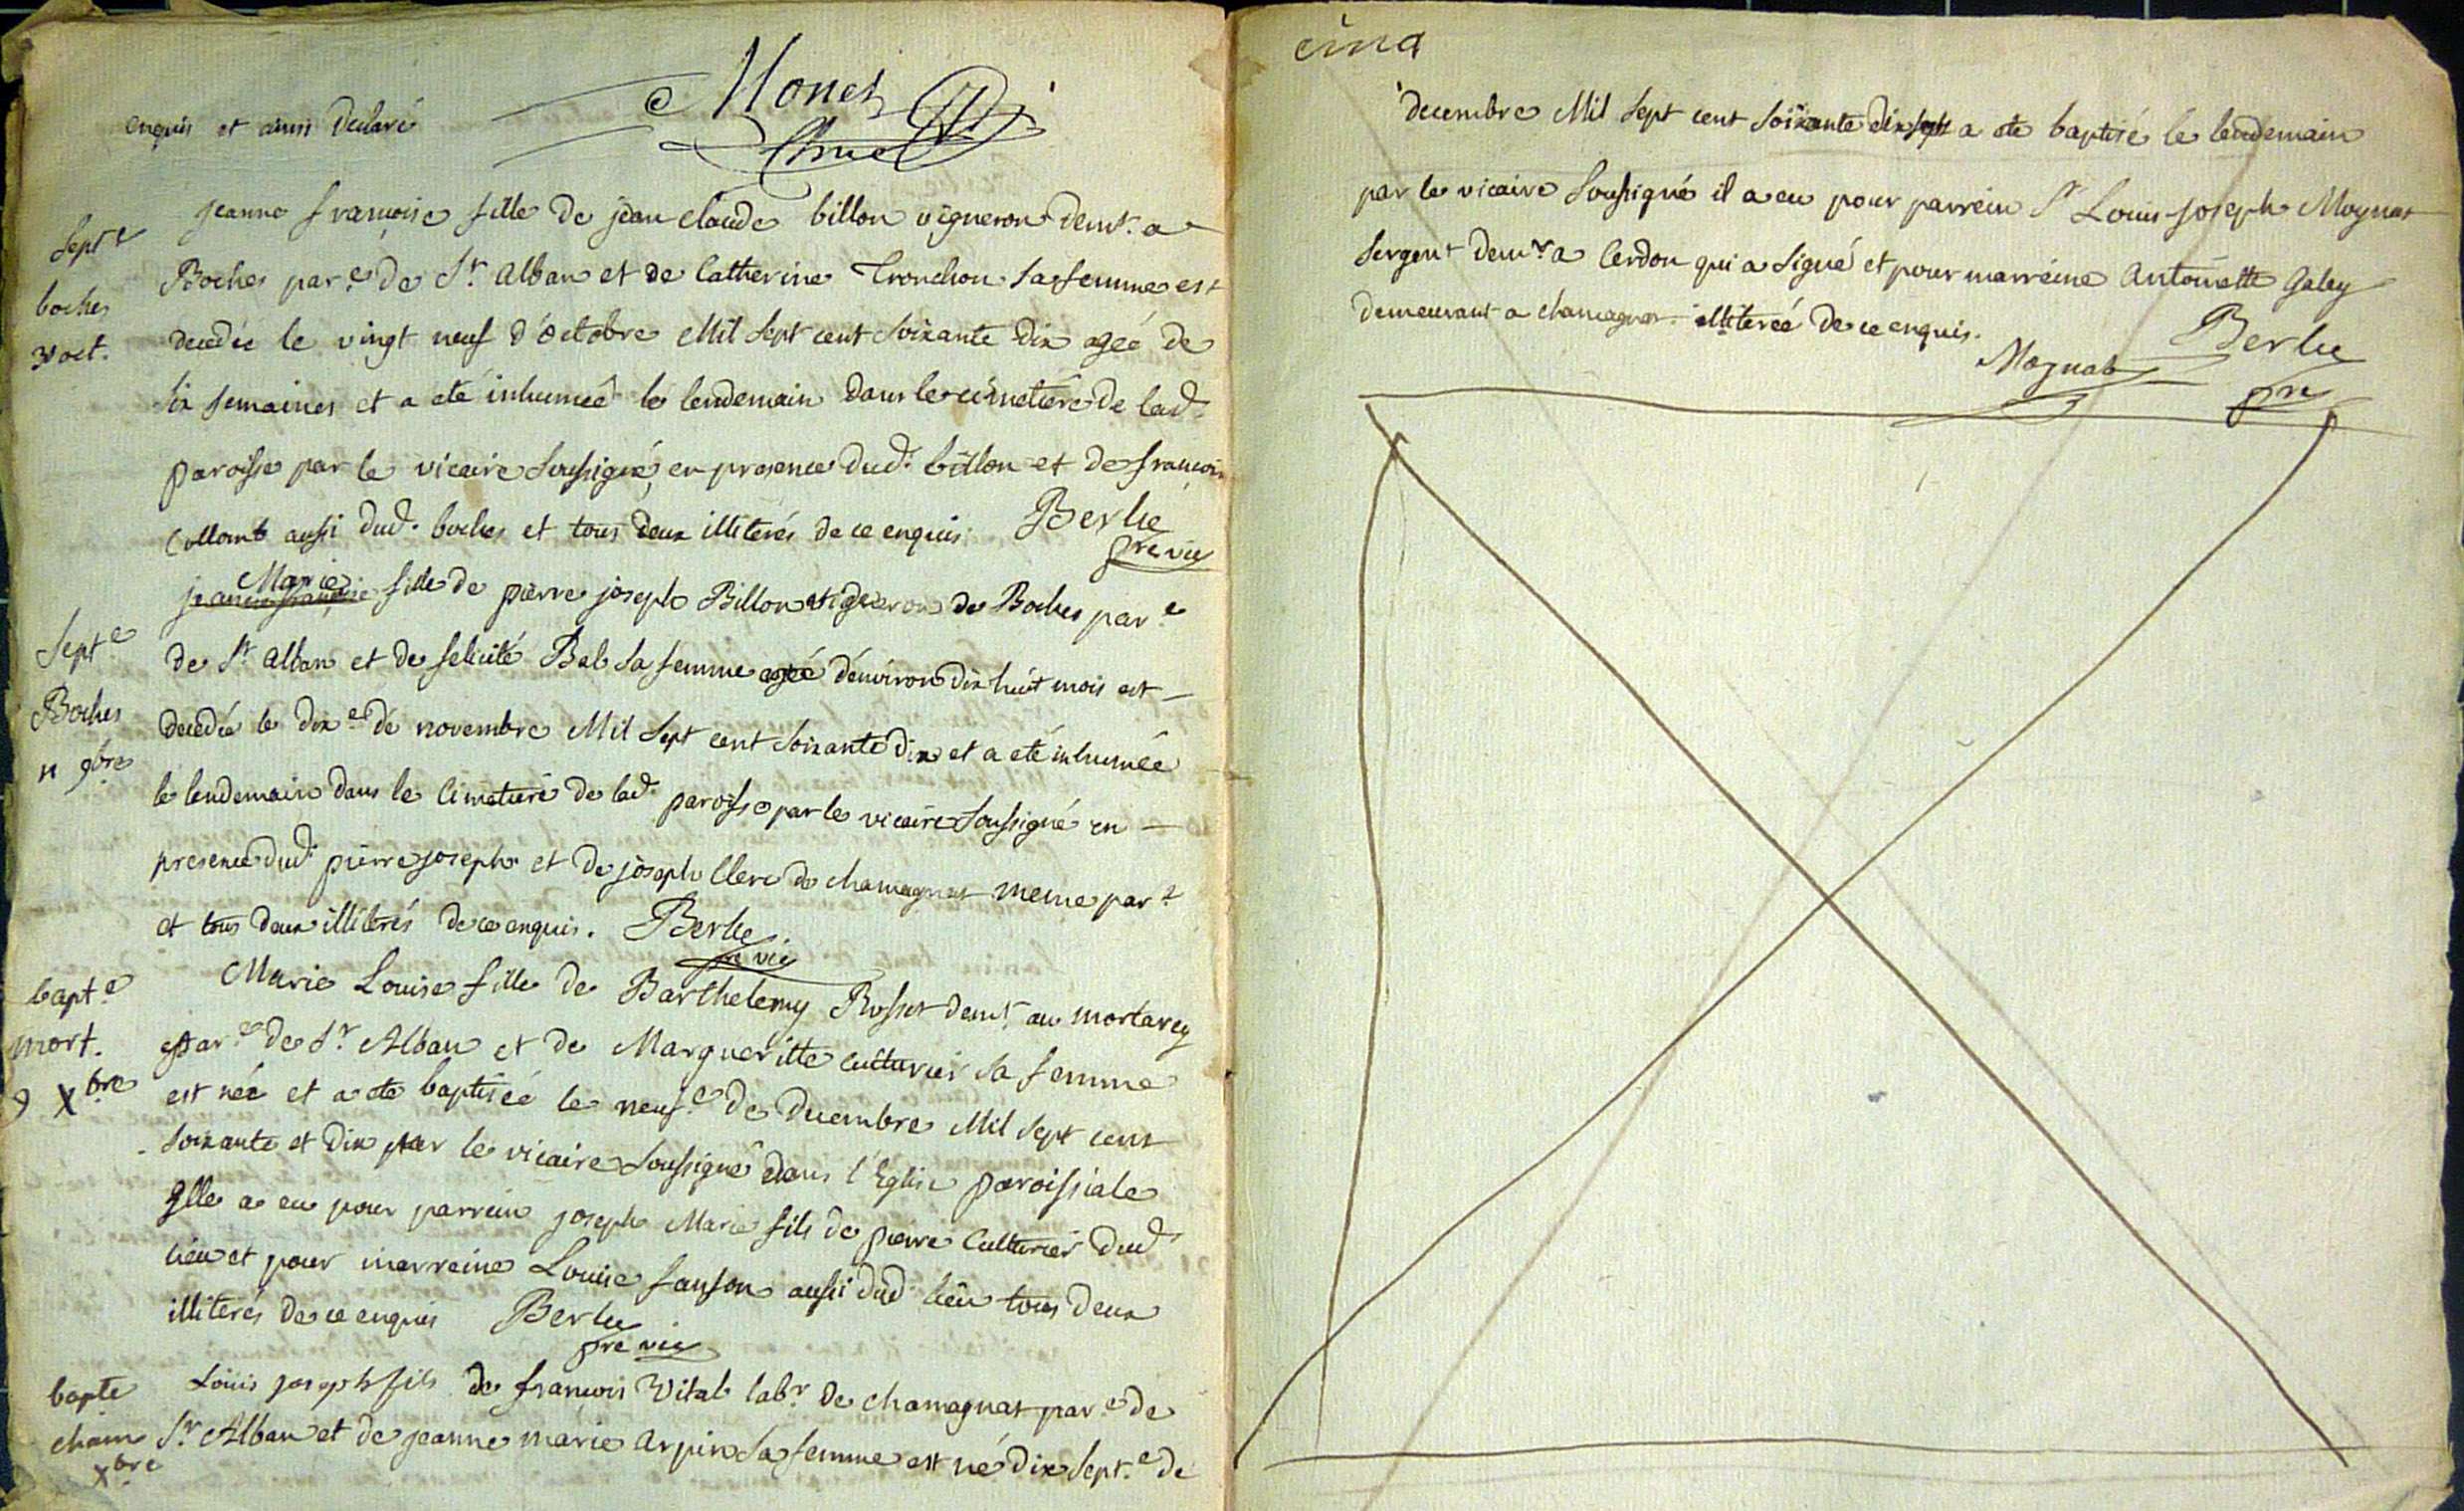 enquis et ainsi declaré
Monet
Curé
Sept.e
boches
31 oct.
jeanne françoise fille de jean claude billon vigneron demt. a
Boches par.e de St. alban et de Catherine Tronchon sa femme est
decedée le vingt neuf d'octobre Mil sept cent soixante dix ageé de
six semaines et a eté inhumeé le lendemain dans le cimetiere de lad.
paroisse par le vicaire soussigné, en presence dud. billon et de françois
Collomb aussi dud. boches et tous deux illiterés de ce enquis. Berlie
pre vic
Sept.e
Boches
11 9bre
Marie
jeanne françoise fille de pierre joseph Billon vigneron de Boches par.e
de St. alban et de felicité Bal sa femme ageé d'environ dix huit mois est
decedée le dix.e de novembre Mil sept cent soixante dix et a eté inhumée
le lendemain dans le Cimetiere de lad. paroisse par le vicaire soussigné en
presence dud. pierre joseph et de joseph Clerc de chamagnat meme par.e
et tous deux illiterés de ce enquis. Berlie
pre vic
bapt.e
mort.
9 Xbre
Marie Louise fille de Barthelemy Rosset demt. au mortarey
par.e de St. Alban et de Margueritte Culturier sa femme
est née et a eté baptiseé le neuf.e de decembre Mil sept cent
soixante et dix par le vicaire soussigné dans l'Eglise paroissiale
Elle a eu pour parrein joseph Marie fils de pierre Culturier dud.
lieu et pour marreine Louise sanson aussi dud. lieu tous deux
illiterés de ce enquis Berlie
pre vic
bapte
cham
Xbre
Louis joseph fils de françois Vital labr. de chamagnat par.e de
St. Alban et de jeanne marie arpin sa femme est né dix sept.e de
cinq
decembre Mil sept cent soixante dix sept a eté baptisé le lendemain
par le vicaire soussigné il a eu pour parrein Sr Louis joseph Moynat
sergent demt. a Cerdon qui a signé et pour marreine antoinette Galey
demeurant a chamagnat illitereé de ce enquis.
Moynat Berlie
pre